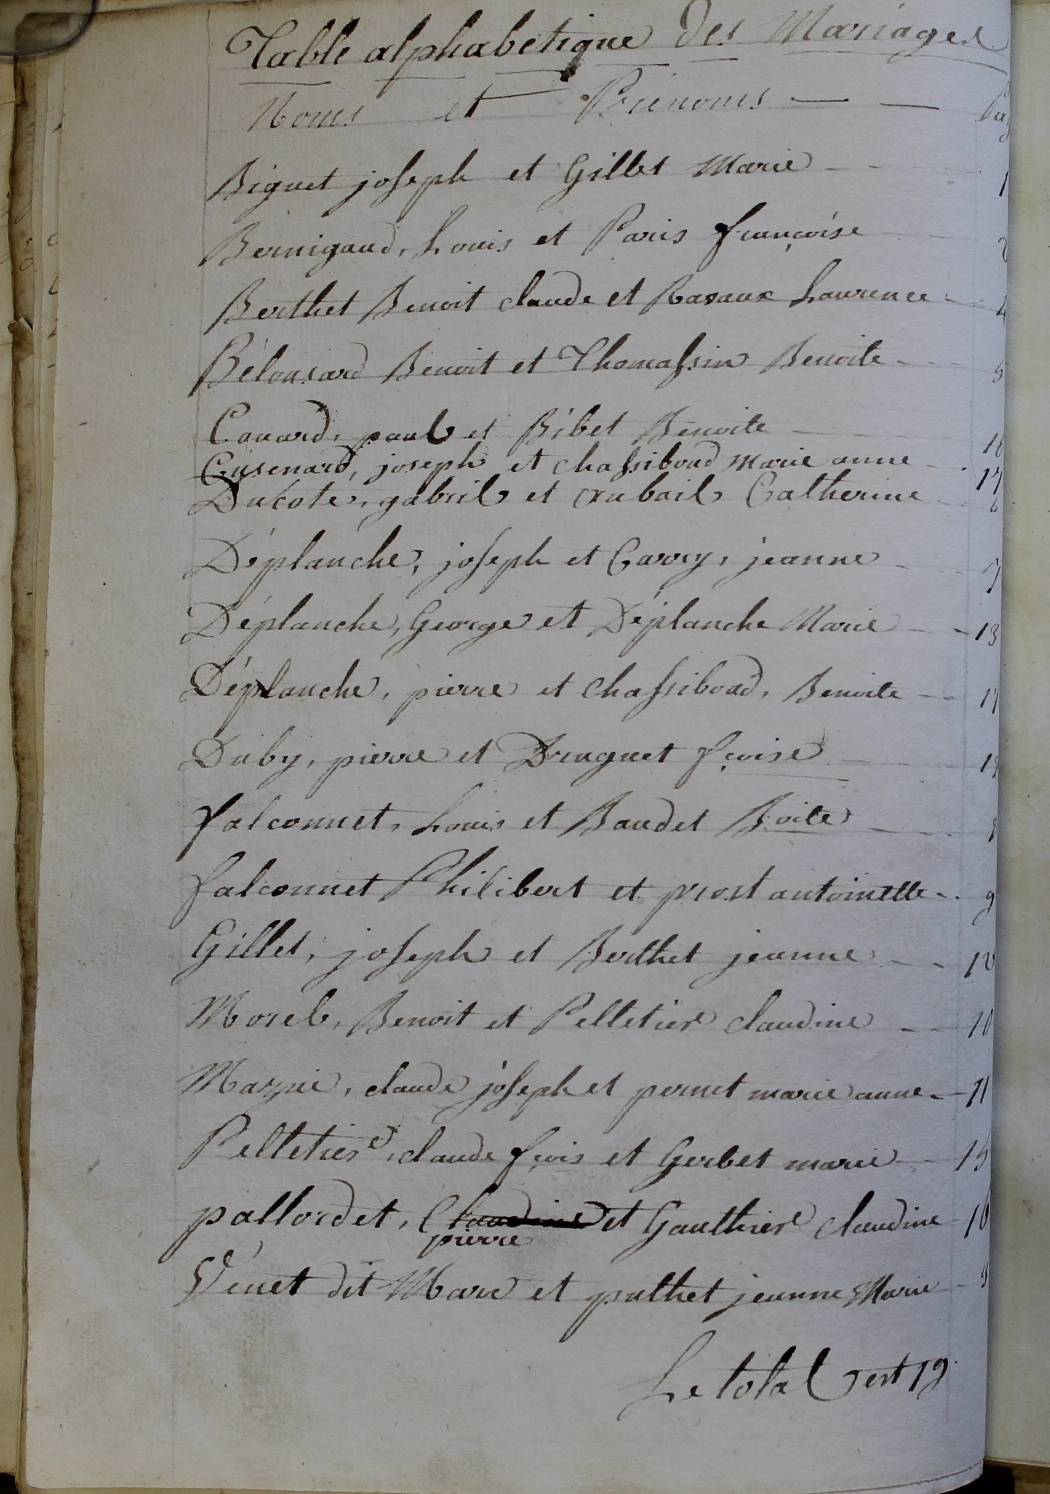 Table alphabétique des Mariages
Noms et Prénoms — — Pag
Biguet joseph et Gillet Marie 1
Bernigaud, Louis et Paris françoise 2
Berthet Benoit claude et Ravaux Laurence 4
Bélousard Benoit et Thomassin Benoite 5
Canard, paul et Bibet Benoite 16
Cusenard, joseph et chassiboud Marie anne 17
Ducote, gabriel et Catherine 6
Déplanche, joseph et Cavory, jeanne 7
Déplanche, George et Déplanche Marie 13
Déplanche, pierre et chassiboud, Benoite
Duby, pierre et Druguet fçoise
falconnet, Louis et Baudet Boite 8
falconnet Philibert et prost antoinette 9
Gillet, joseph et Berthet jeanne
Morel, Benoit et Pelletier claudine 10
claude joseph et pernet marie anne 11
Pelletier, claude fçois et Gerbet marie 15
pallordet, Claudine et Gauthier claudine
pierre
Vénet dit Marc et puthet jeanne Marie
Le total est 19